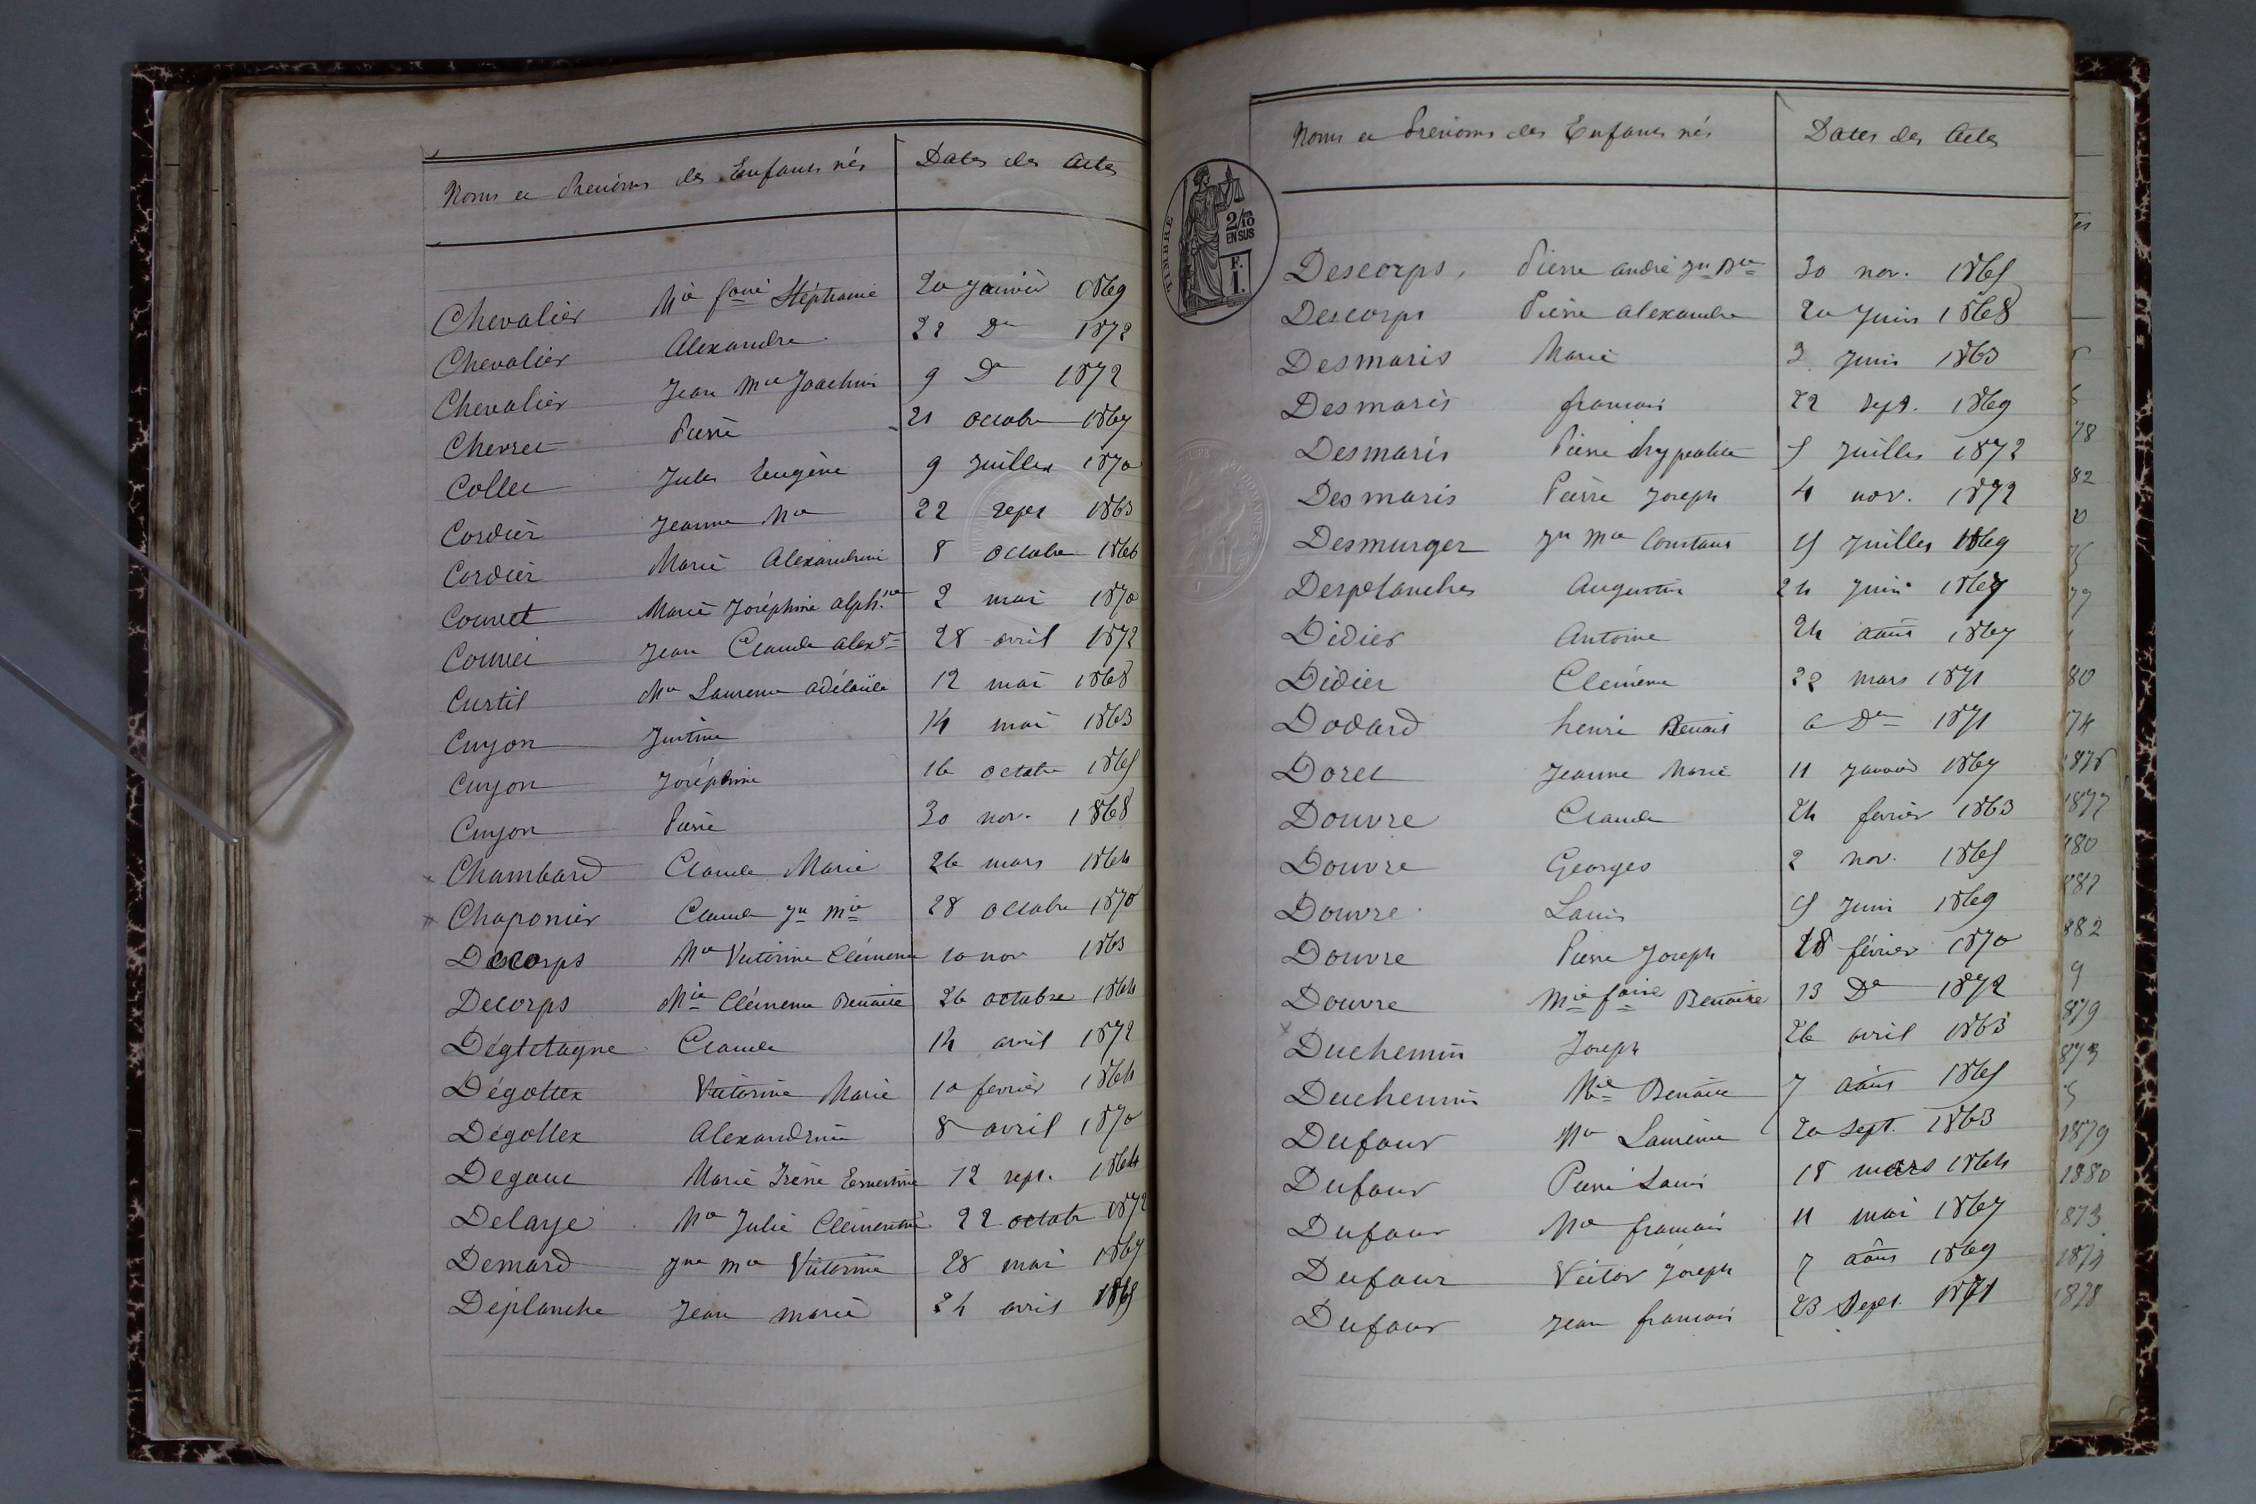 Noms et Prénoms des Enfants nés Dates des Actes
Chevalier Mie fsoise Stéphanie 20 Janvier 1869
Chevalier Alexandre 22 Do 1872
Chevalier Jean Mie Joachim 9 Do 1872
Chevret Pierre 21 octobre 1867
Collet Jules Eugène 9 Juillet 1870
Cordier Jeanne Mie 22 sept 1863
Cordier Marie Alexandrine 8 octobre 1866
Couvet Marie Joséphine alph.ine 2 mai 1870
Couvet Jean Claude alexdre 28 avril 1872
Curtil Mie Laurence adélaïde 12 mai 1868
Cuyon Justine 14 mai 1863
Cuyon Joséphine 16 octobre 1865
Cuyon Pierre 30 nov. 1868
Chambard Claude Marie 26 mars 1864
Chaponier Claude Jn Mie 28 octobre 1870
Decorps Mie Victorine Clémence 10 nov 1863
Decorps Mie Clémence Benoite 26 octobre 1864
Dégletagne Claude 14 avril 1872
Dégottex Victorine Marie 10 fevrier 1864
Dégottex Alexandrine 8 avril 1870
Degout Marie Irène Ernestine 12 sept. 1864
Delaye Mie Julie Clémentine 22 octobre 1872
Demard Jne Mie Victorine 28 mai 1867
Déplanche Jean marie 24 avril 1865
Noms et Prénoms des Enfants nés Dates des Actes
TIMBRE
2/10 EN SUS
F. 1.
Descorps, Pierre andré Jn Bte 30 nov. 1865
Descorps Pierre alexandre 20 Juin 1868
Desmaris Marie 3 Juin 1863
Desmaris francois 22 sept. 1869
Desmaris Pierre hyppolite 5 Juillet 1872
Desmaris Pierre Joseph 4 nov. 1872
Desmurger Jn Mie Constant 15 Juillet 1869
Desplanches Augustin 24 Juin 1867
Didier Antoine 24 août 1867
Didier Clémence 22 mars 1871
Dodard henri Benoit 6 Do 1871
Doret Jeanne Marie 11 Janvier 1867
Douvre Claude 24 fevrier 1863
Douvre Georges 2 nov. 1865
Douvre Louis 15 Juin 1869
Douvre Pierre Joseph 28 février 1870
Douvre Mie foise Benoite 13 Do 1872
Duchemin Joseph 26 avril 1863
Duchemin Mie Benoite 7 août 1865
Dufour Mie Laurence 20 sept. 1863
Dufour Pierre Louis 18 mars 1864
Dufour Mie francois 11 mai 1867
Dufour Victor Joseph 7 août 1869
Dufour Jean francois 23 Sept. 1871
78
82
80
74
1877
1879
1880
1873
1878